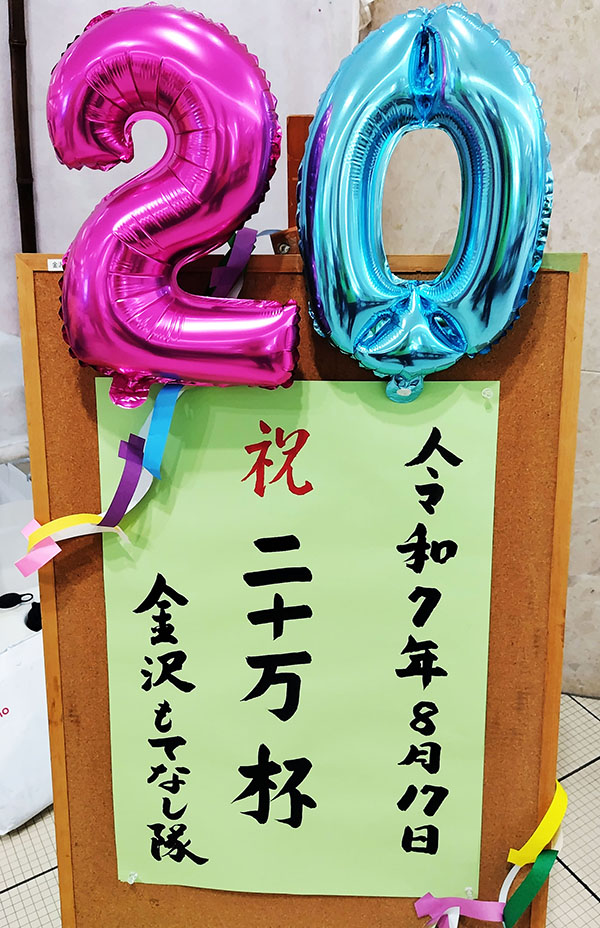 20
令和7年8月17日
祝 二十万杯
金沢もてなし隊